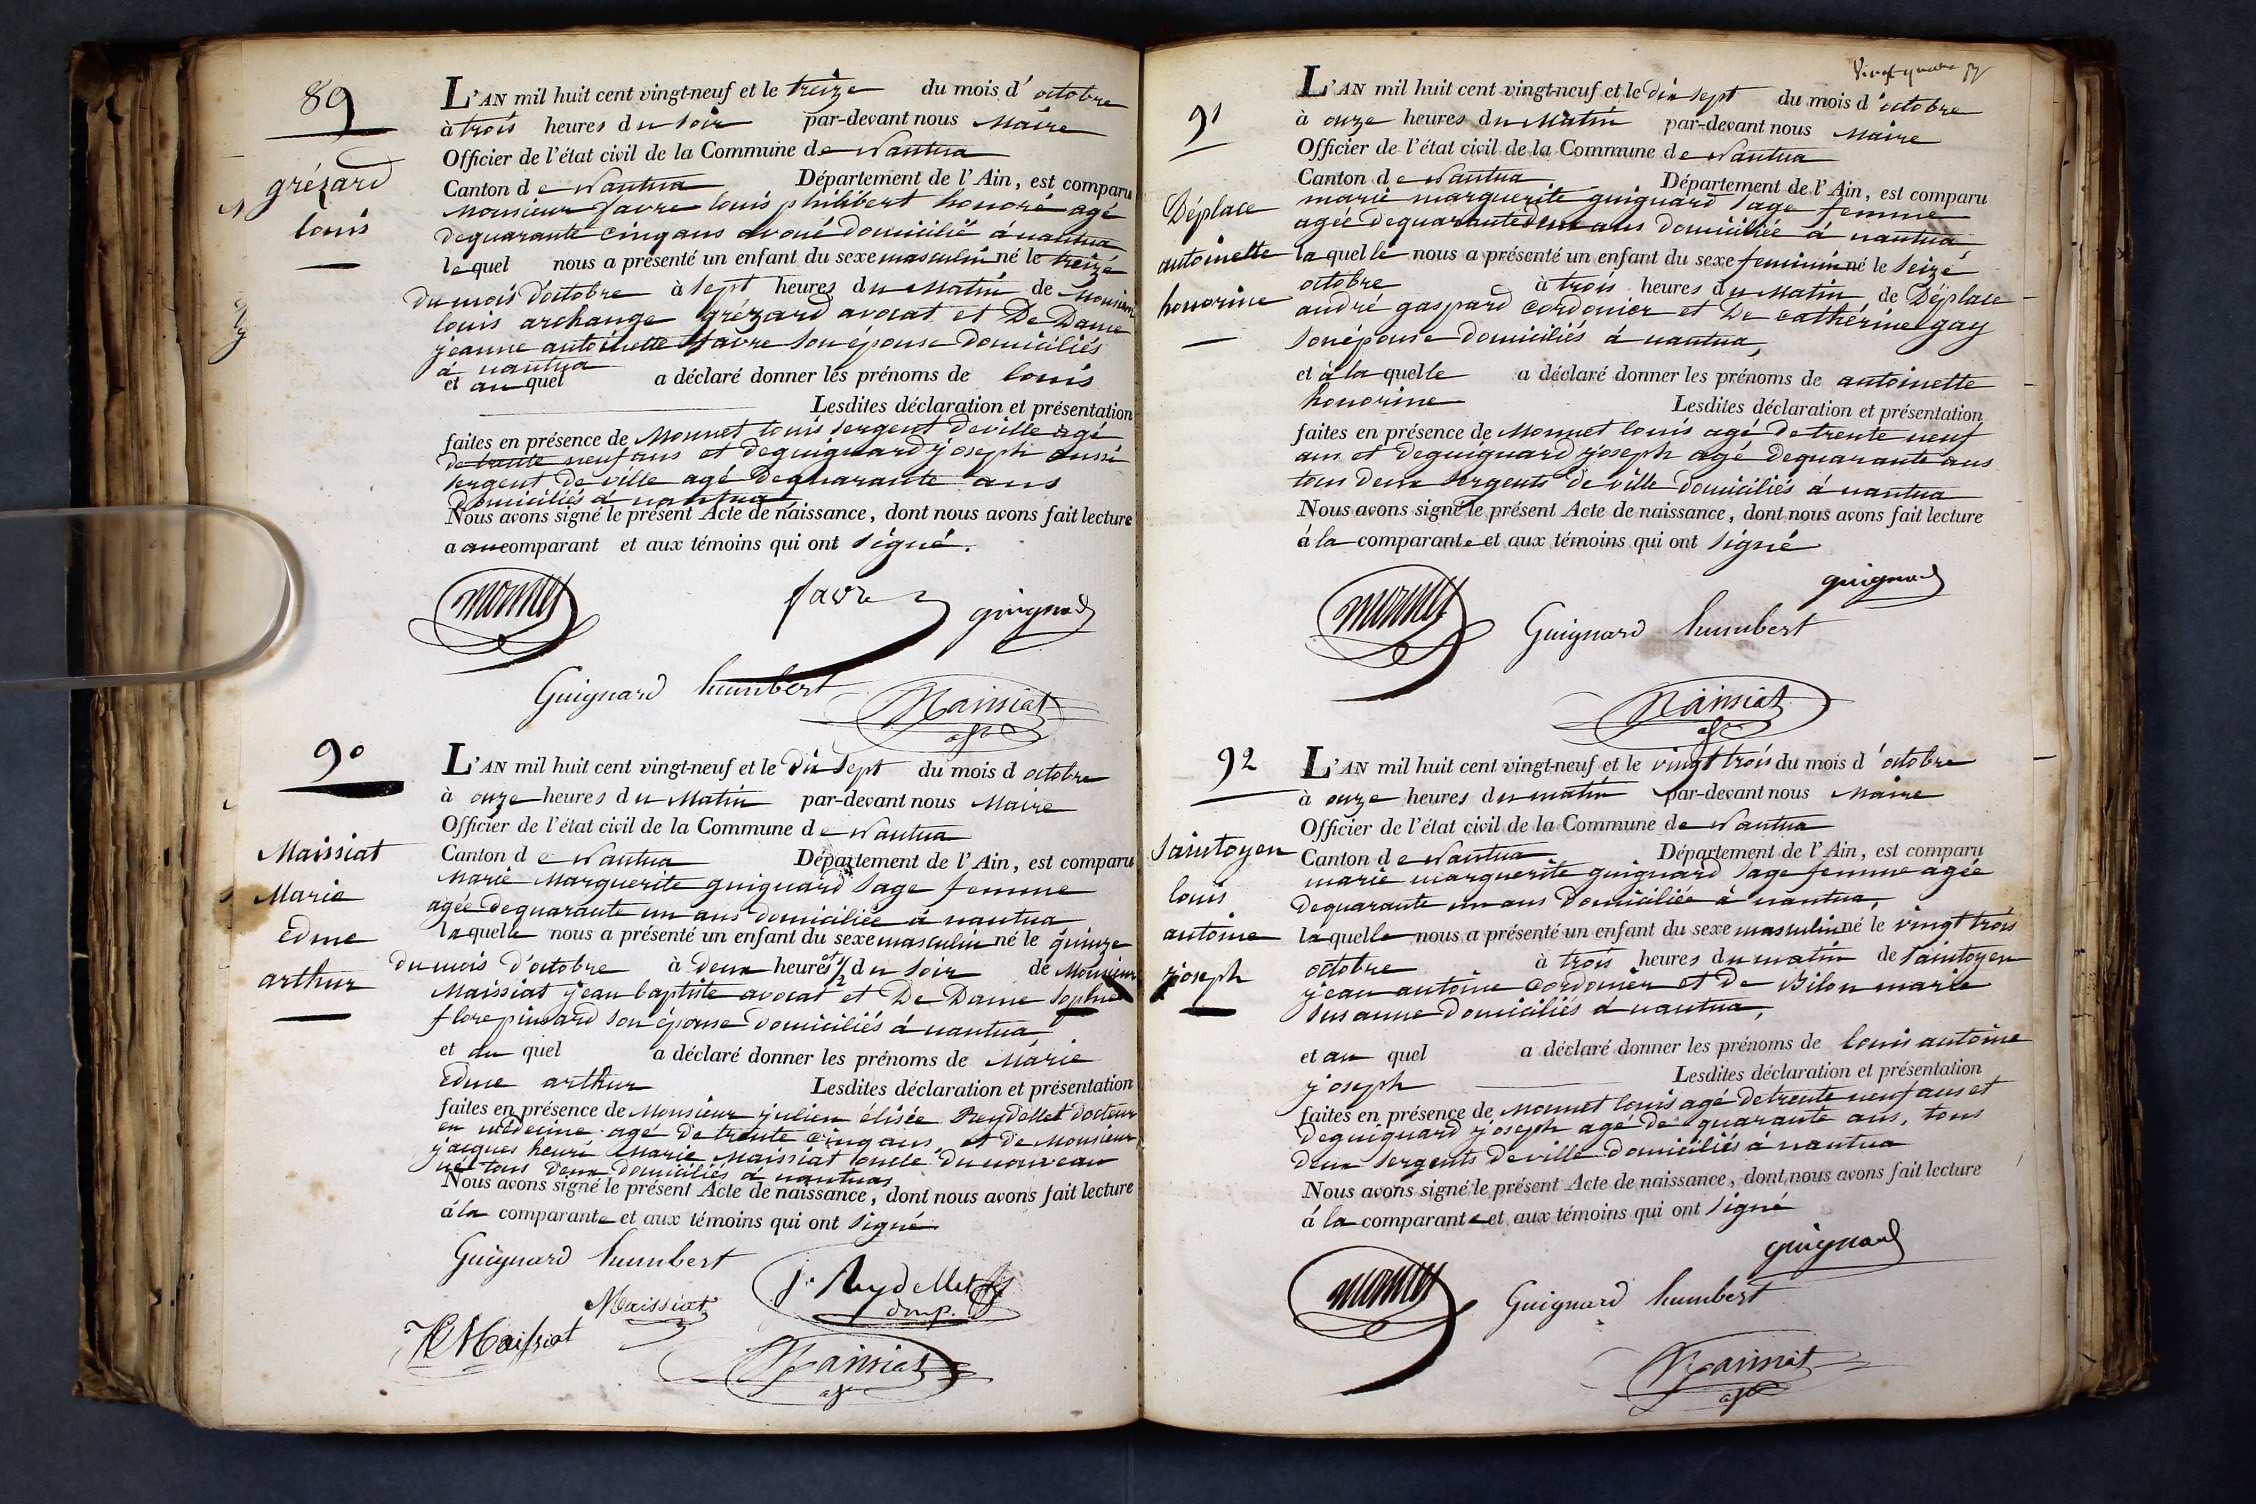 89
grézard
louis
L'AN mil huit cent vingt-neuf et le treize du mois d'octobre
à trois heures du soir par-devant nous Maire
Officier de l'état civil de la Commune de Nantua
Canton de Nantua Département de l'Ain, est comparu
Monsieur favre louis philibert honoré agé
de quarante cinq ans avoué domicilié à nantua
le quel nous a présenté un enfant du sexe masculin né le treize
du mois d'octobre à sept heures du Matin de Monsieur
louis archange grézard avocat et De Dame
jeanne antoinette favre son épouse Domiciliés
à nantua
et au quel a déclaré donner les prénoms de louis
Lesdites déclaration et présentation
faites en présence de Monnet louis sergent de ville agé
de trente neuf ans et de guignard joseph aussi
sergent De ville agé De quarante ans
Domiciliés à nantua
Nous avons signé le présent Acte de naissance, dont nous avons fait lecture
a au comparant et aux témoins qui ont signé.
monnet favre guignard
Guignard humbert Maissiat
90
Maissiat
Marie
edme
arthur
L'AN mil huit cent vingt-neuf et le dix sept du mois d octobre
à onze heures du Matin par-devant nous Maire
Officier de l'état civil de la Commune de Nantua
Canton de Nantua Département de l'Ain, est comparu
Marie Marguerite guignard sage femme
agée de quarante un ans domiciliée à nantua
la quelle nous a présenté un enfant du sexe masculin né le quinze
du mois d'octobre à deux heures et 1/2 du soir de Monsieur
Maissiat jean baptiste avocat et De Dame Sophie
flore pinsard son épouse domiciliés à nantua
et au quel a déclaré donner les prénoms de Marie
edme arthur Lesdites déclaration et présentation
faites en présence de Monsieur julien élisée Reydellet docteur
en médecine agé de trente cinq ans, et de Monsieur
jacques henri Marie Maissiat oncle du nouveau
né tous deux domiciliés à nantua
Nous avons signé le présent Acte de naissance, dont nous avons fait lecture
à la comparante et aux témoins qui ont signé
Guignard humbert
Maissiat j. Reydellet
dmp.
H Maissiat
Maissiat
91
Déplace
antoinette
honorine
L'AN mil huit cent vingt-neuf et le dix sept du mois d'octobre
à onze heures du Matin par-devant nous Maire
Officier de l'état civil de la Commune de Nantua
Canton de Nantua Département de l'Ain, est comparu
marie marguerite guignard sage femme
agée de quarante un ans domiciliée à nantua
la quelle nous a présenté un enfant du sexe feminin né le seize
octobre à trois heures du Matin de Déplace
andré gaspard cordonier et De cathérine gay
son épouse domiciliés à nantua,
et à la quelle a déclaré donner les prénoms de antoinette
honorine Lesdites déclaration et présentation
faites en présence de Monnet louis agé de trente neuf
ans et De guignard joseph agé De quarante ans
tous deux sergents de ville domiciliés à nantua
Nous avons signé le présent Acte de naissance, dont nous avons fait lecture
à la comparante et aux témoins qui ont signé
monnet guignard
Guignard humbert
Maissiat
92
saintoyen
louis
antoine
joseph
L'AN mil huit cent vingt-neuf et le vingt trois du mois d'octobre
à onze heures du matin par-devant nous Maire
Officier de l'état civil de la Commune de Nantua
Canton de Nantua Département de l'Ain, est comparu
marie marguerite guignard sage femme agée
de quarante un ans domiciliée à nantua,
la quelle nous a présenté un enfant du sexe masculin né le vingt trois
octobre à trois heures du matin de saintoyen
jean antoine cordonier et De Bilon marie
susanne domiciliés à nantua,
et au quel a déclaré donner les prénoms de louis antoine
joseph Lesdites déclaration et présentation
faites en présence de Monnet louis agé de trente neuf ans et
De guignard joseph agé de quarante ans, tous
deux sergents de ville domiciliés à nantua
Nous avons signé le présent Acte de naissance, dont nous avons fait lecture
à la comparante et aux témoins qui ont signé
monnet guignard
Guignard humbert
Maissiat